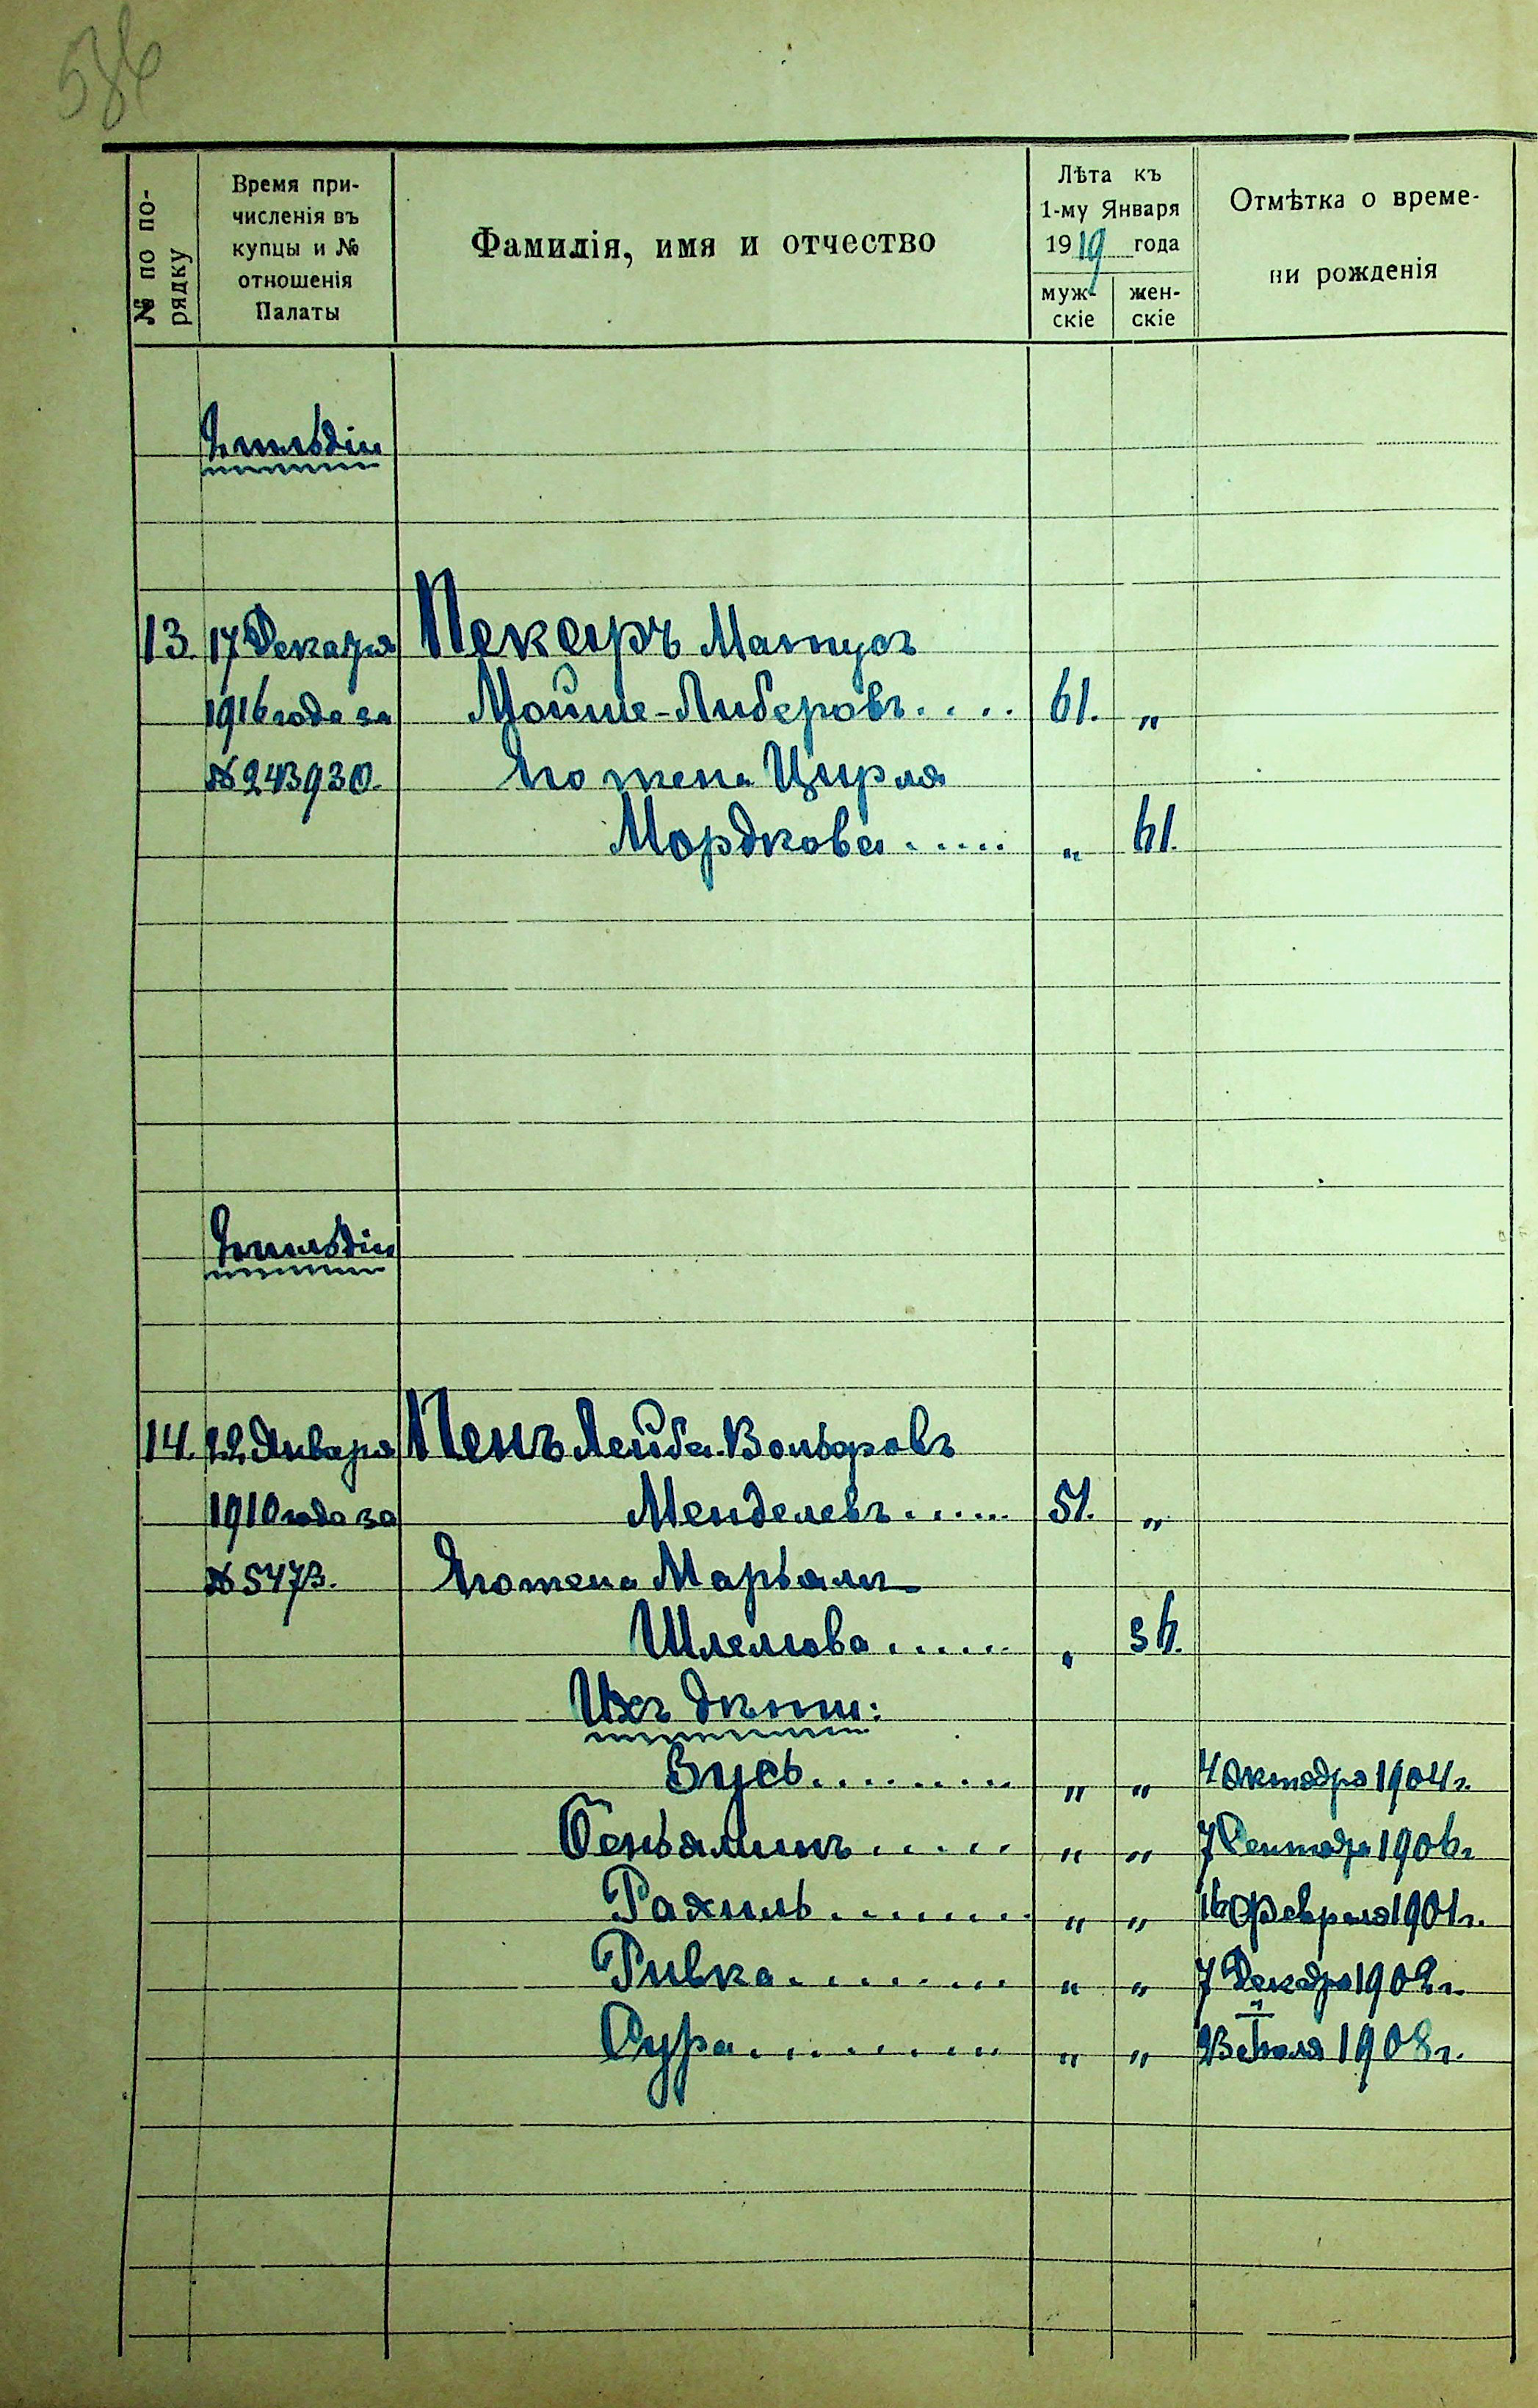 586
№ по по-
рядку
Время при-
численія въ
купцы и №
отношенія
Палаты
Фамилія, имя и отчество
Лѣта къ
1-му Января
1919 года
муж-
скіе
жен-
скіе
Отмѣтка о време-
ни рожденія
13. 17 Декабря Пекеръ Матусъ
1916 года за Мойше-Либеровъ..... 61. „
№ 243930. Его жена Цирля
Мордкова...... „ 61.
14. 22 Января Пенъ Лейба-Вольфовъ
1910 года за Менделевъ...... 51. „
№ 5473. Его жена Марьямъ
Шлемова...... „ 36.
Ихъ дѣти:
Зусь......... „ „ 4 Октября 1904 г.
Беньяминъ..... „ „ 7 Сентября 1906 г.
Рахиль........ „ „ 16 Февраля 1901 г.
Ривка......... „ „ 7 Декабря 1902 г.
Сура.......... „ „ 23 Іюля 1908 г.